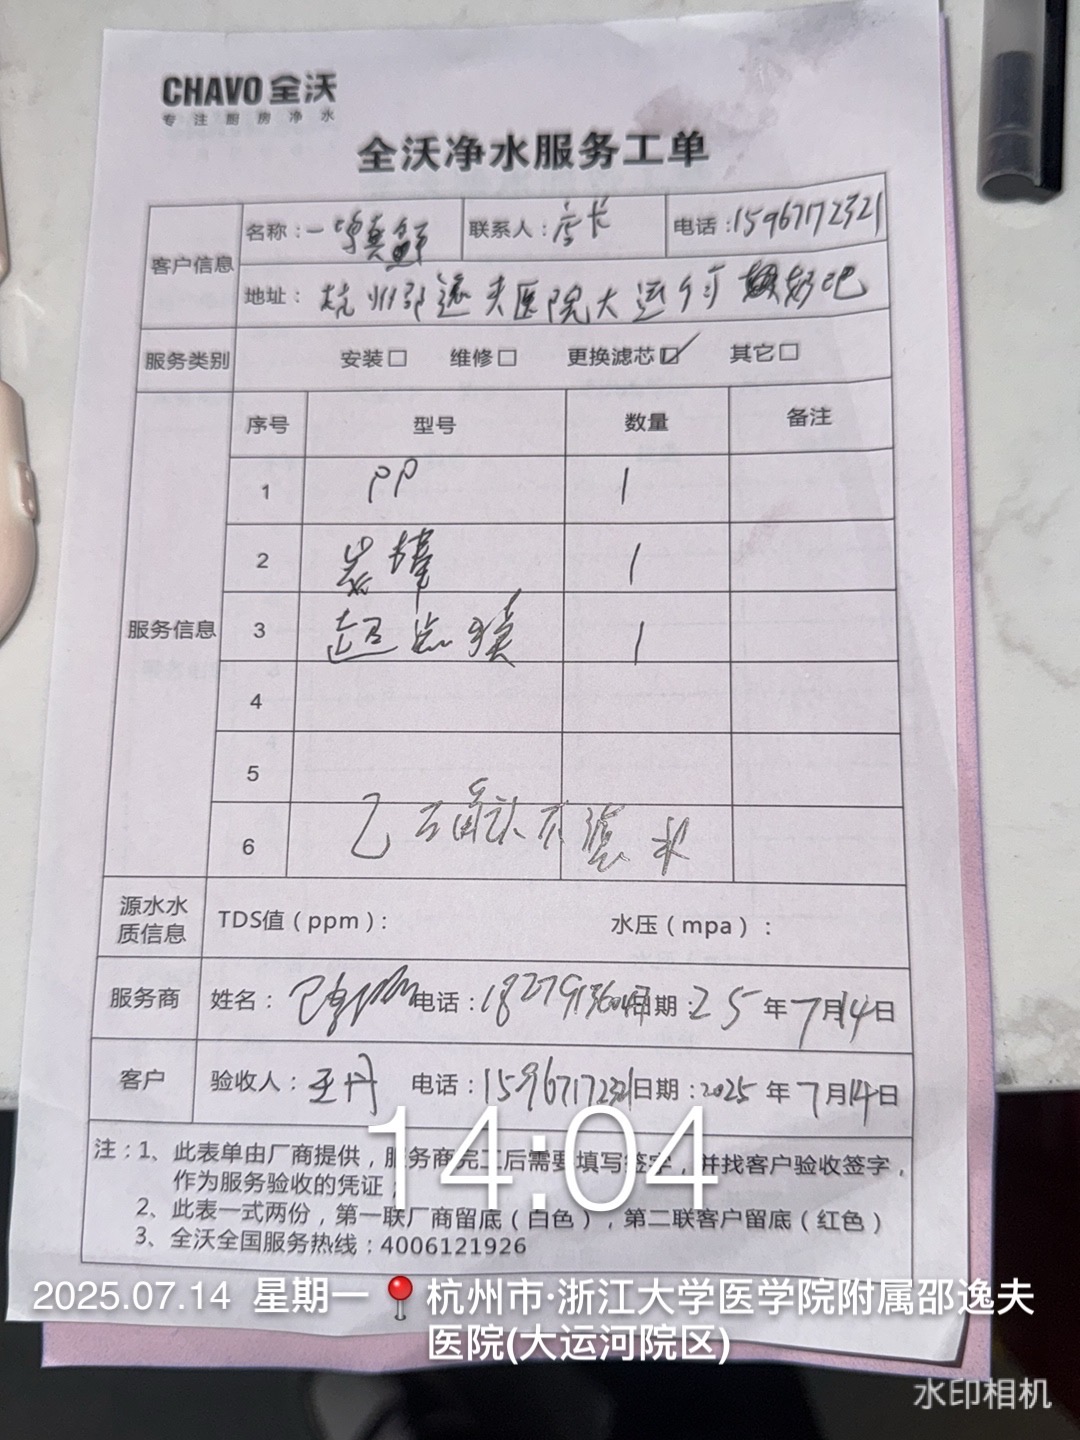 CHAVO 全沃
专注厨房净水
全沃净水服务工单
客户信息 名称：一鸣真鲜 联系人：店长 电话：15967172321
地址：杭州邵逸夫医院大运河
服务类别 安装□ 维修□ 更换滤芯☑ 其它□
服务信息 序号 型号 数量 备注
1 PP 1
2 炭棒 1
3 超滤膜 1
4
5
6 已确认不漏水
源水水质信息 TDS值（ppm）： 水压（mpa）：
服务商 姓名： 电话：18279136047 日期：25年7月14日
客户 验收人：王丹 电话：15967172321 日期：2025年7月14日
14:04
注：1、此表单由厂商提供，服务商完工后需要填写签字，并找客户验收签字，
作为服务验收的凭证；
2、此表一式两份，第一联厂商留底（白色），第二联客户留底（红色）
3、全沃全国服务热线：4006121926
2025.07.14 星期一 杭州市·浙江大学医学院附属邵逸夫
医院(大运河院区)
水印相机